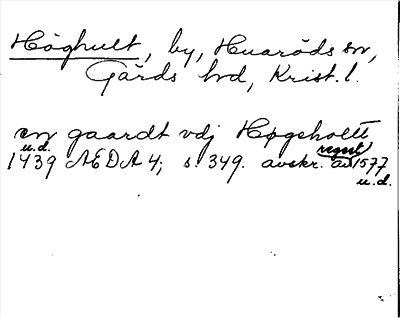 Höghult, by, Huaröds sn,
Gärds hd, Krist. l.
en gaardt vdj Høgeholtt
u.d.
1439 AEDA 4; s. 349. avskr. av 1577
regest
u.d.